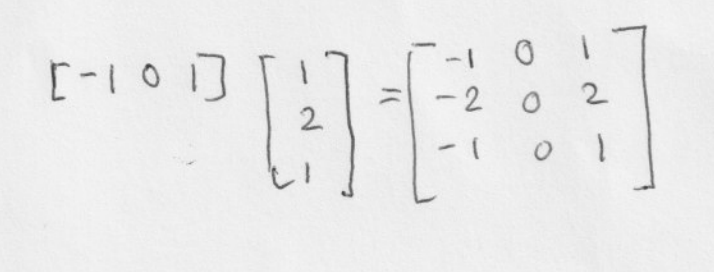 [-1 0 1] [1 2 1] = [-1 0 1
-2 0 2
-1 0 1]